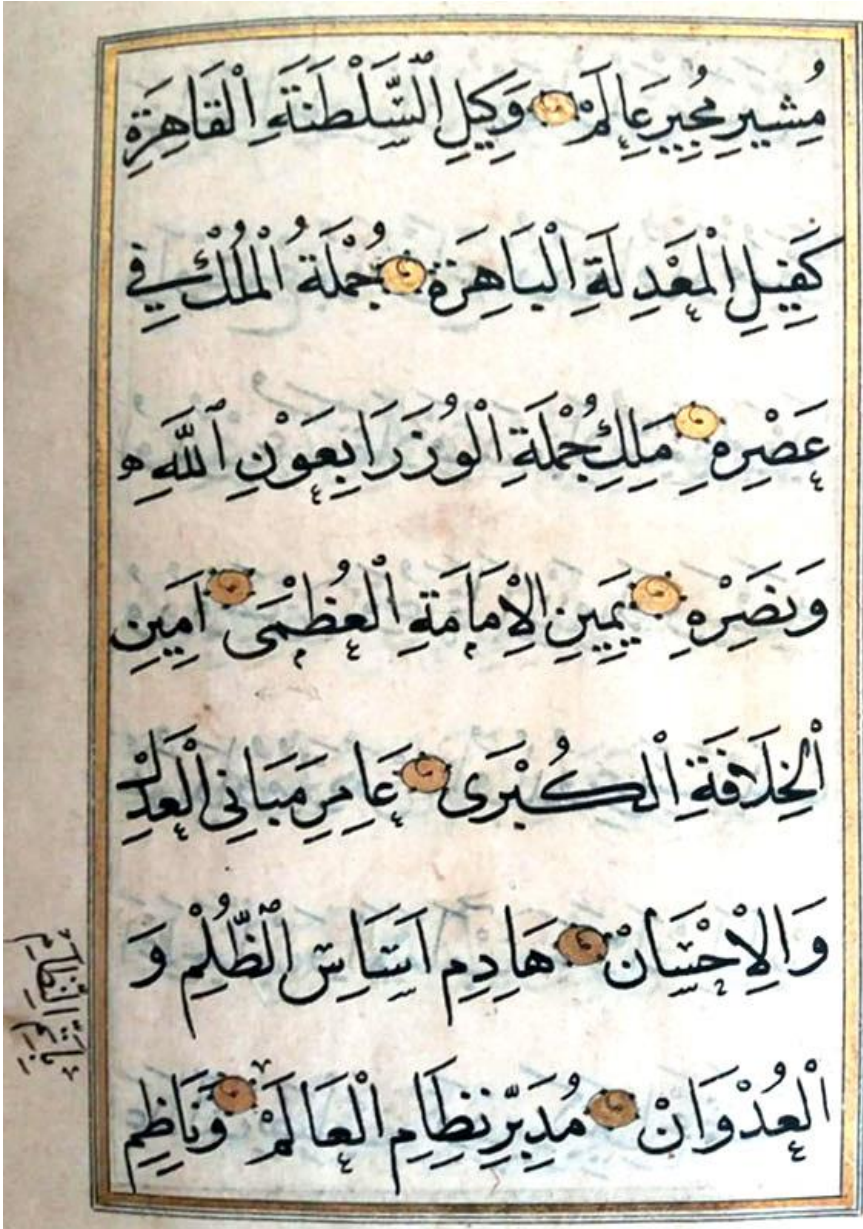 مُشيرِ مُجيرِ عَالِمْ وَكِيلِ السَّلْطَنَةِ الْقَاهِرَةِ
كَفِيلِ الْمَعْدِلَةِ الْبَاهِرَة جُمْلَةُ الْمُلْكِ فِي
عَصْرِهِ مَلِكِ جُمْلَةِ الْوُزَرَا بِعَوْنِ اللهِ
وَنَصْرِهِ يَمِينِ الْاِمَامَةِ الْعُظْمَى اَمِينِ
الْخِلَافَةِ الْكُبْرَى عَامِرِ مَبَانِى الْعَدْلِ
وَالْاِحْسَانْ هَادِمِ اَسَاسِ الظُّلْمِ وَ
الْعُدْوَانْ مُدَبِّرِ نِظَامِ الْعَالَمْ وَنَاظِمِ